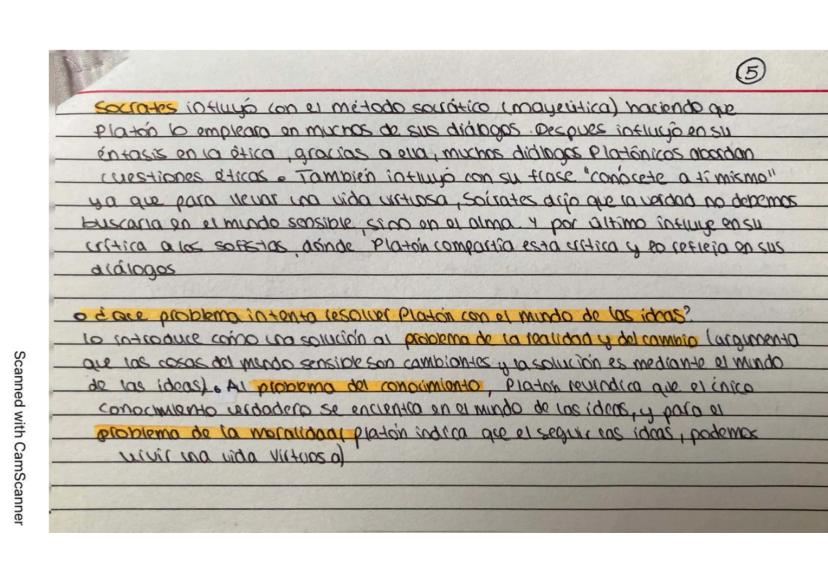 5
Socrates influyó con el método socrático (mayeútica) haciendo que
Platón lo empleara en muchos de sus diálogos. Despues influyó en su
énfasis en la ética, gracias a ella, muchos diálogos Platónicos abordan
cuestiones éticas. También influyó con su frase "conócete a ti mismo"
ya que para llevar una vida virtuosa, Sócrates dijo que la verdad no debemos
buscarla en el mundo sensible, sino en el alma. Y por último influye en su
crítica a los sofistas, dónde Platón compartía esta crítica y lo refleja en sus
diálogos
o ¿Qué problema intenta resolver Platón con el mundo de las ideas?
Lo introduce como una solución al problema de la realidad y del cambio (argumenta
que las cosas del mundo sensible son cambiantes y la solución es mediante el mundo
de las ideas). Al problema del conocimiento, Platón reivindica que el único
conocimiento verdadero se encuentra en el mundo de las ideas, y para el
problema de la moralidad( Platón indica que el seguir las ideas, podemos
vivir una vida virtuosa)
Scanned with CamScanner